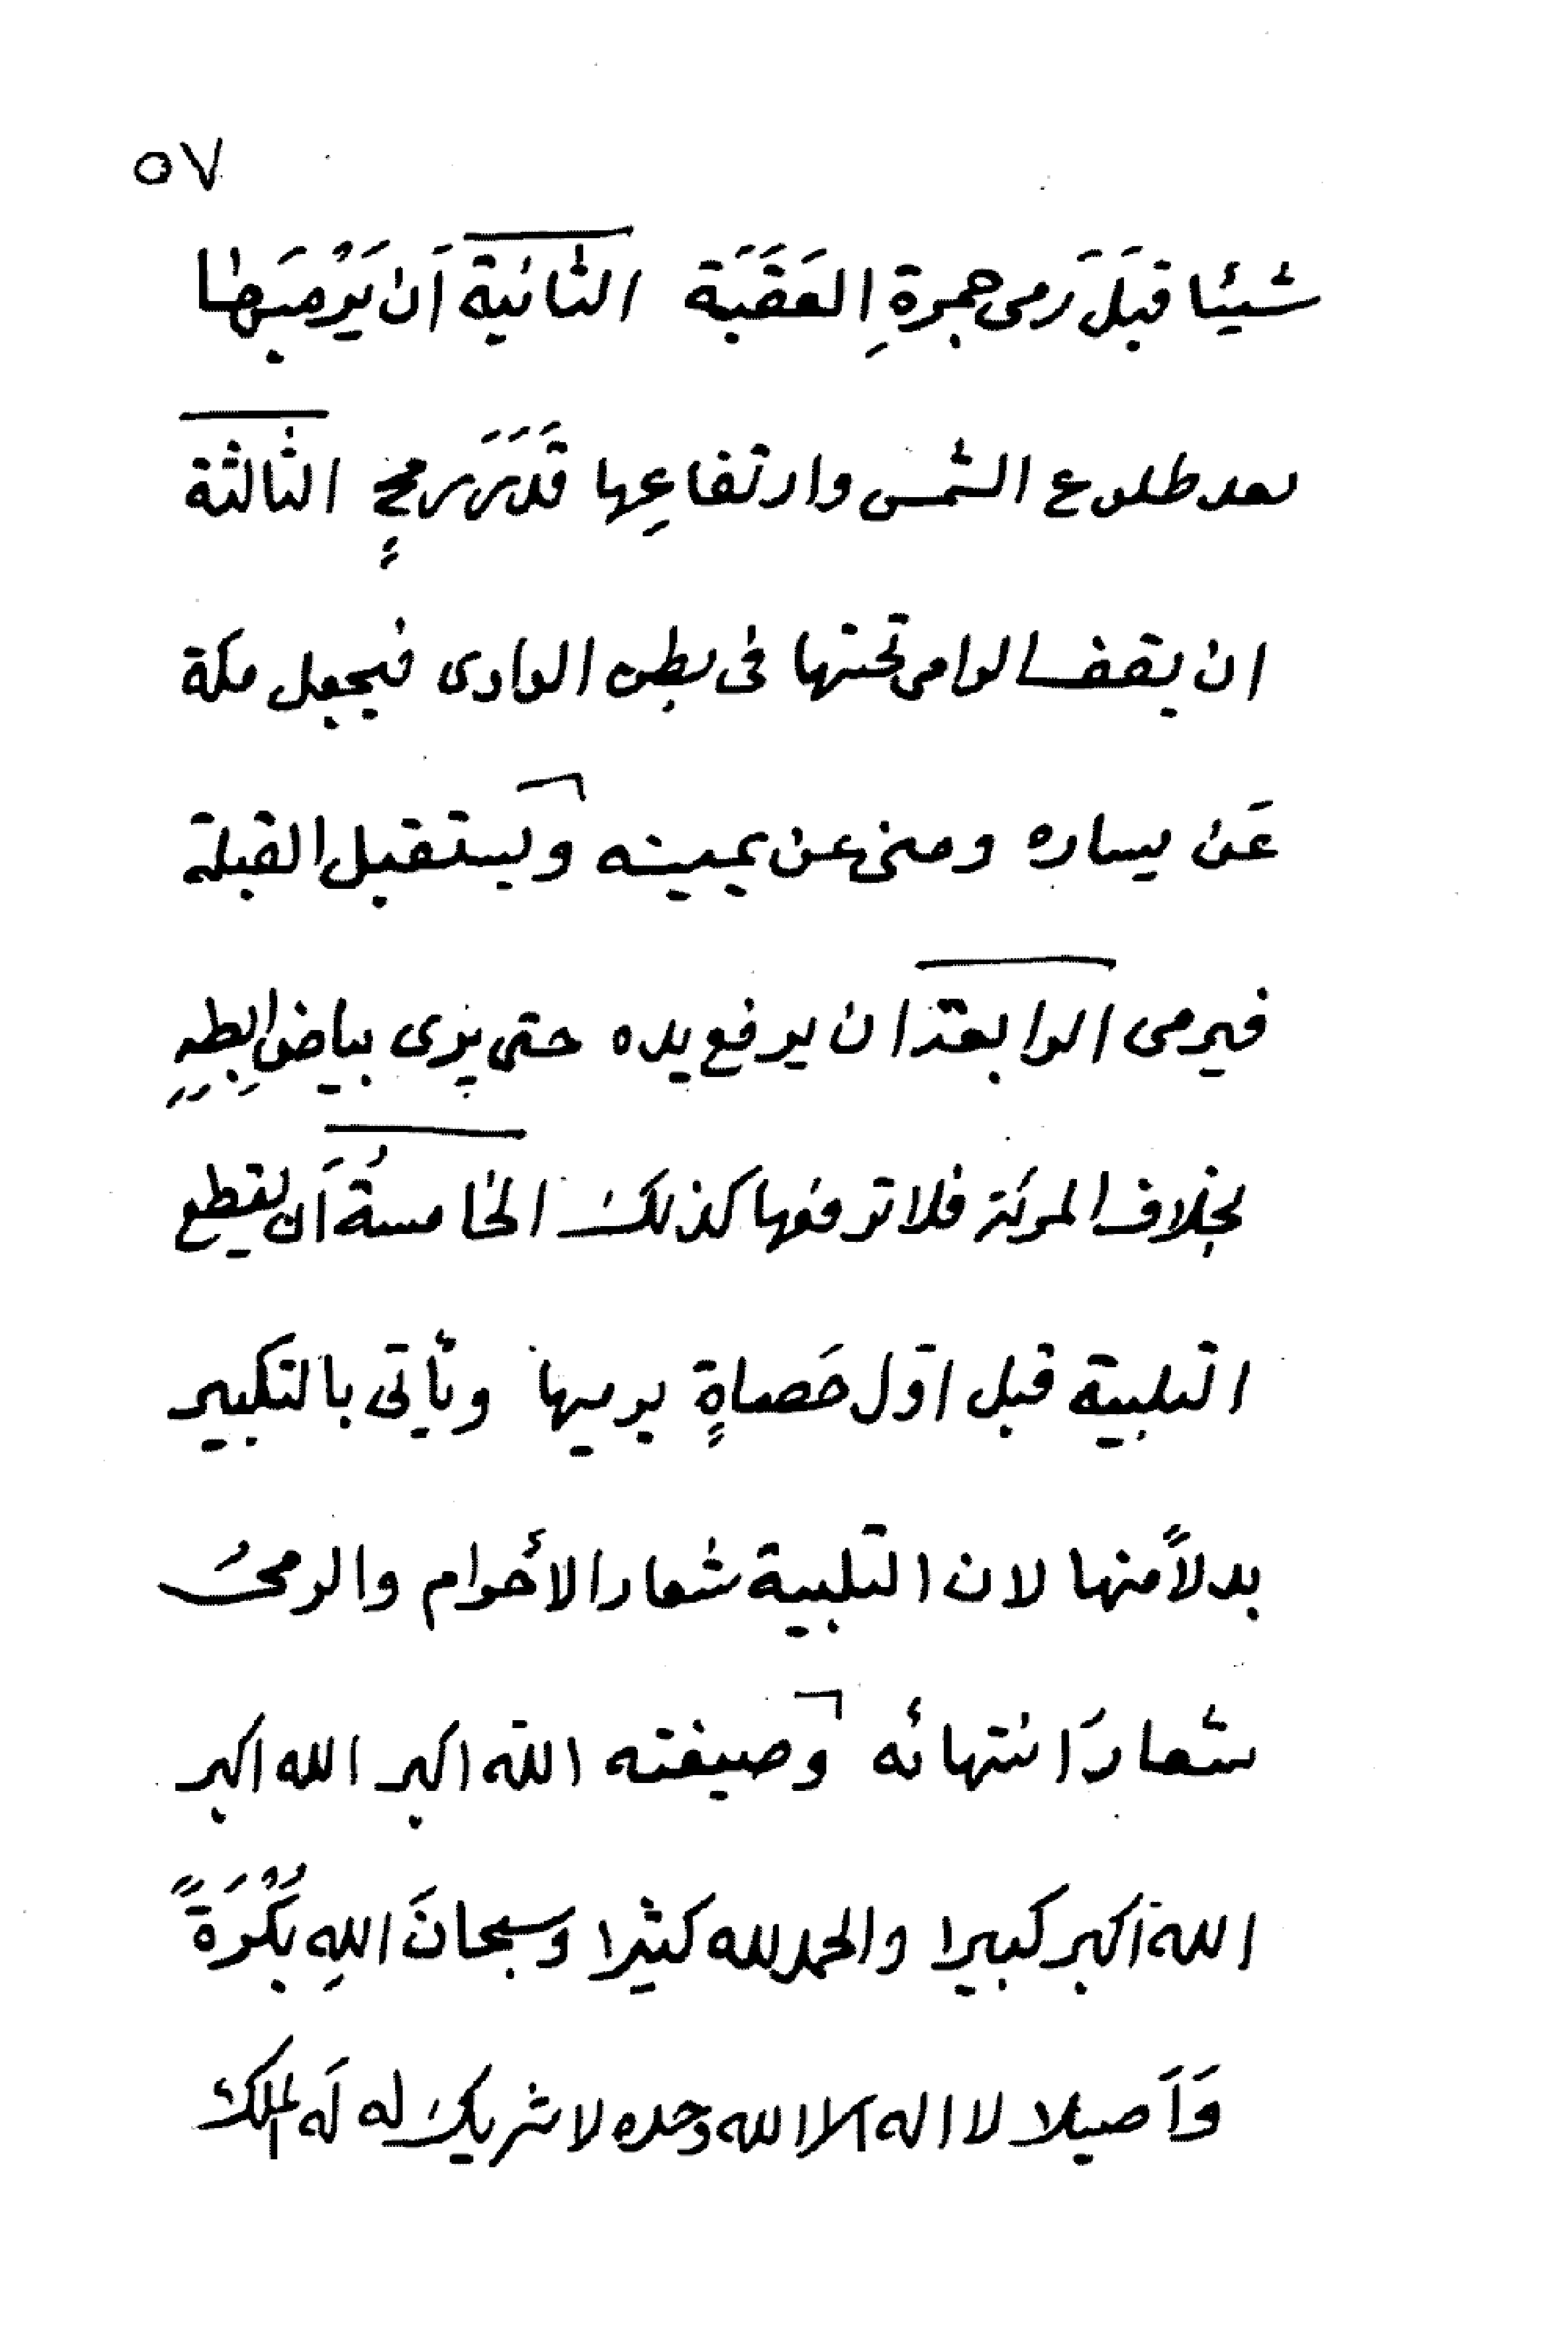 ٥٧
شيئا قبلَ رَمى جمرةِ العَقَبَة الثانية اَن يَرْميَها
بعد طلوع الشمس وارتفاعِها قَدَرَ رمحٍ الثالثة
ان يقف الرامى تحتها فى بطن الوادى فيجعل مكة
عَن يساره ومنى عن يمينه ويستقبل القبلة
فيرمى الرابعة ان يرفع يده حتى يرى بياض اِبِطِهِ
بخلاف المرئة فلا ترفعها كذلك الخامسةُ اَن يقطع
التلبية قبل اوّل حَصاةٍ يرميها ويأتى بالتكبير
بدلاً منها لان التلبية شعار الأحرام والرمىُ
شعارَ انتهائه وصيغته الله اكبر الله اكبر
الله اكبر كبيرا والحمد لله كثيرا وسبحانَ اللهِ بُكْرَةً
وَاَصيلا لا اله الا الله وحده لا شريكَ له لَه الملك